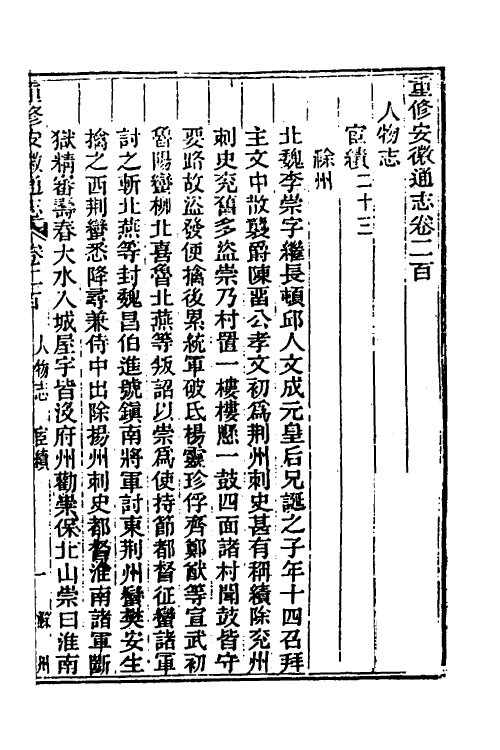 重修安徽通志卷二百
人物志
宦績二十三
滁州
北魏李崇字繼長頓邱人文成元皇后兄誕之子年十四召拜
主文中散襲爵陳畱公孝文初爲荆州刺史甚有稱績除兖州
刺史兖舊多盜崇乃村置一樓樓懸一鼓四面諸村聞鼓皆守
要路故盜發便擒後累統軍破氐楊靈珍俘齊鄭猷等宣武初
魯陽蠻柳北喜魯北燕等叛詔以崇爲使持節都督征蠻諸軍
討之斬北燕等封魏昌伯進號鎮南將軍討東荆州蠻樊安生
擒之西荆蠻悉降尋兼侍中出除揚州刺史都督淮南諸軍斷
獄精審壽春大水入城屋宇皆沒府州勸崇保北山崇曰淮南
重修安徽通志 卷二百 人物志 宦績 一 滁州